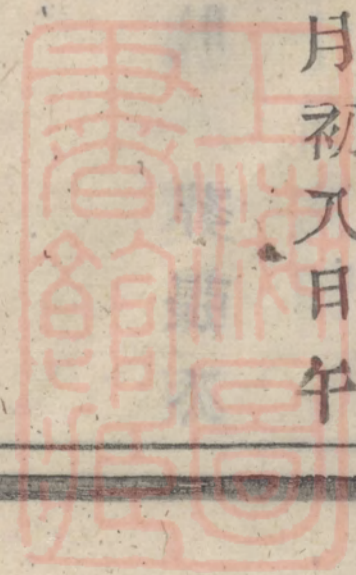 月初八日午
上海圖
書館藏